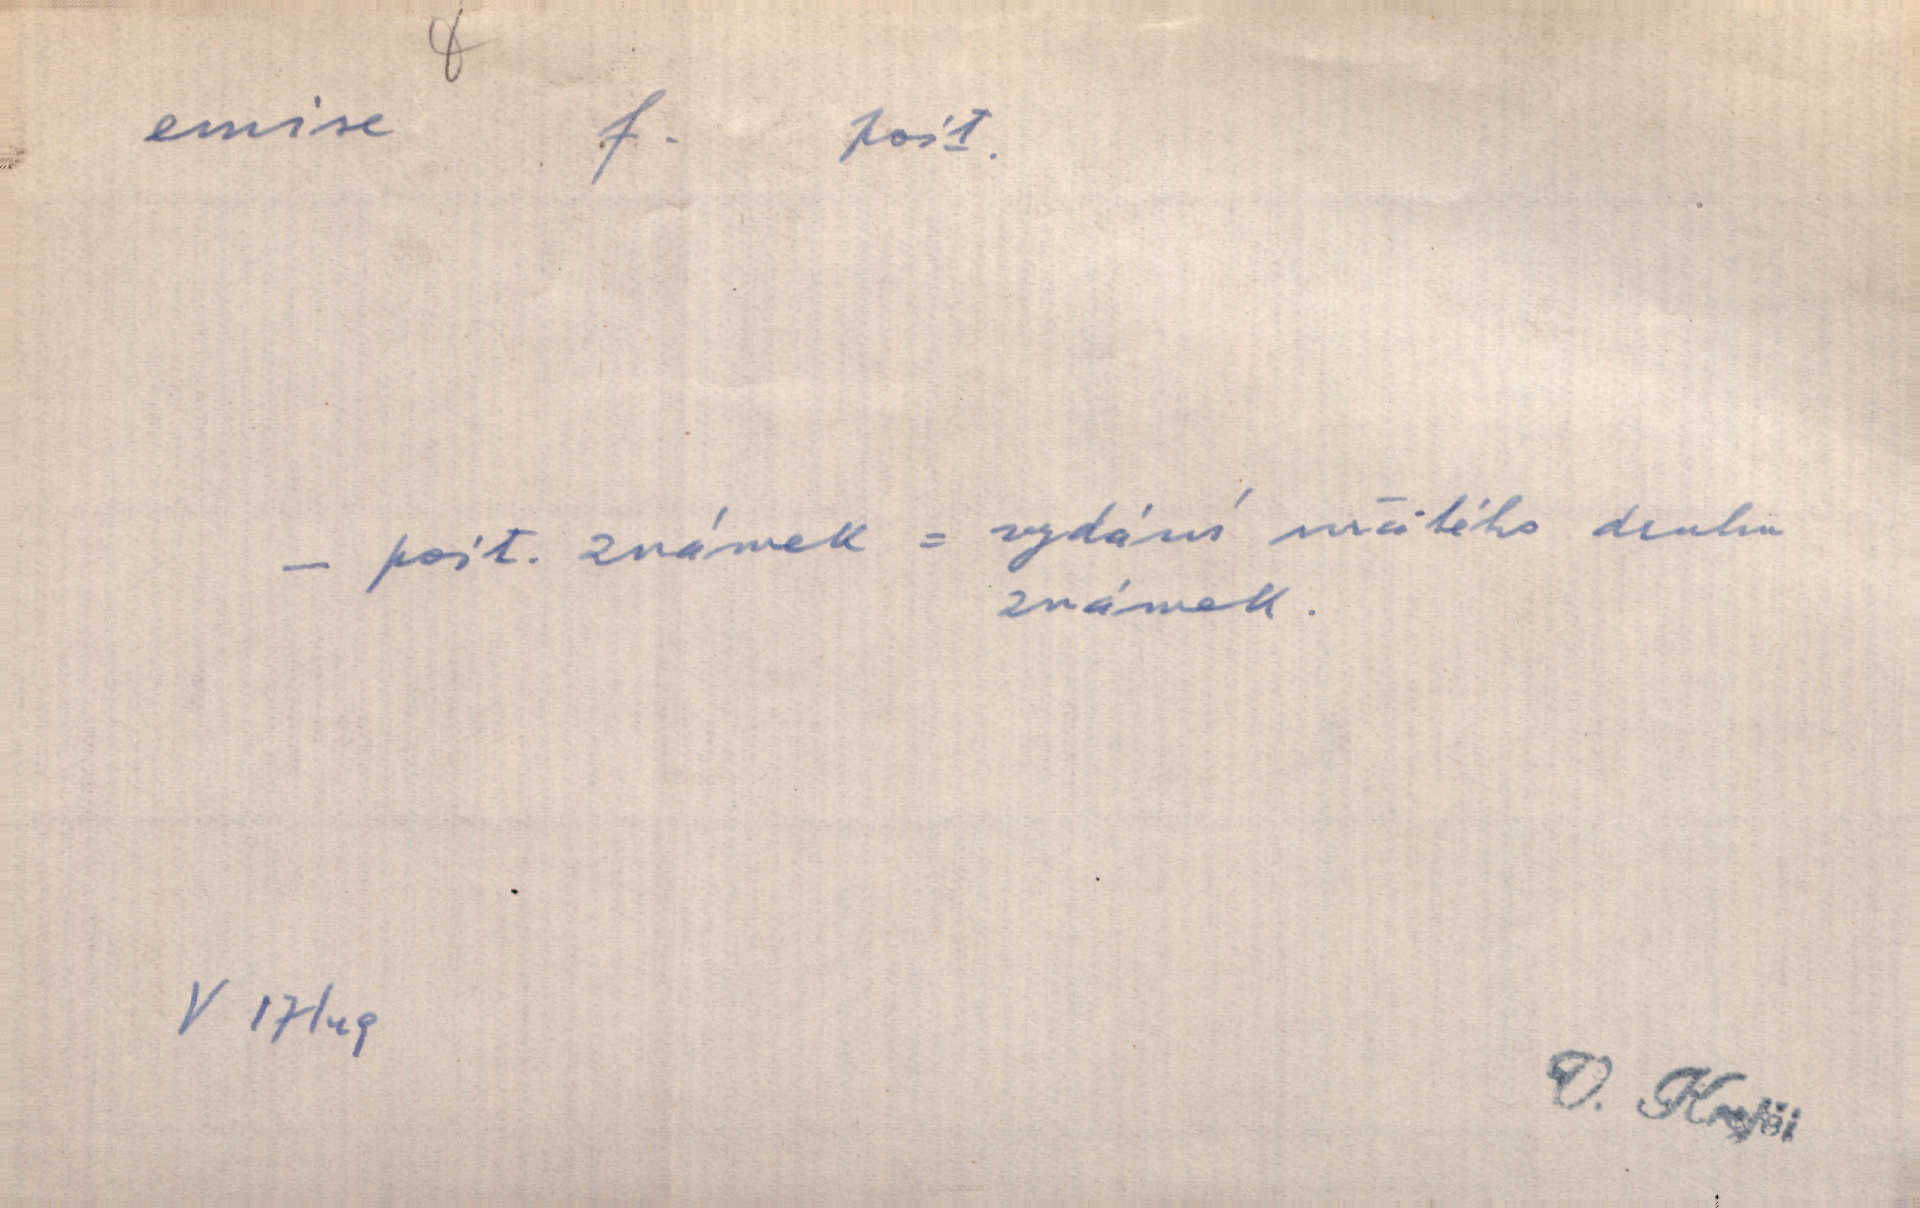 8
emise f. pošt.
— pošt. známek = vydání určitého druhu
známek.
V 17/49
V. Krejčí